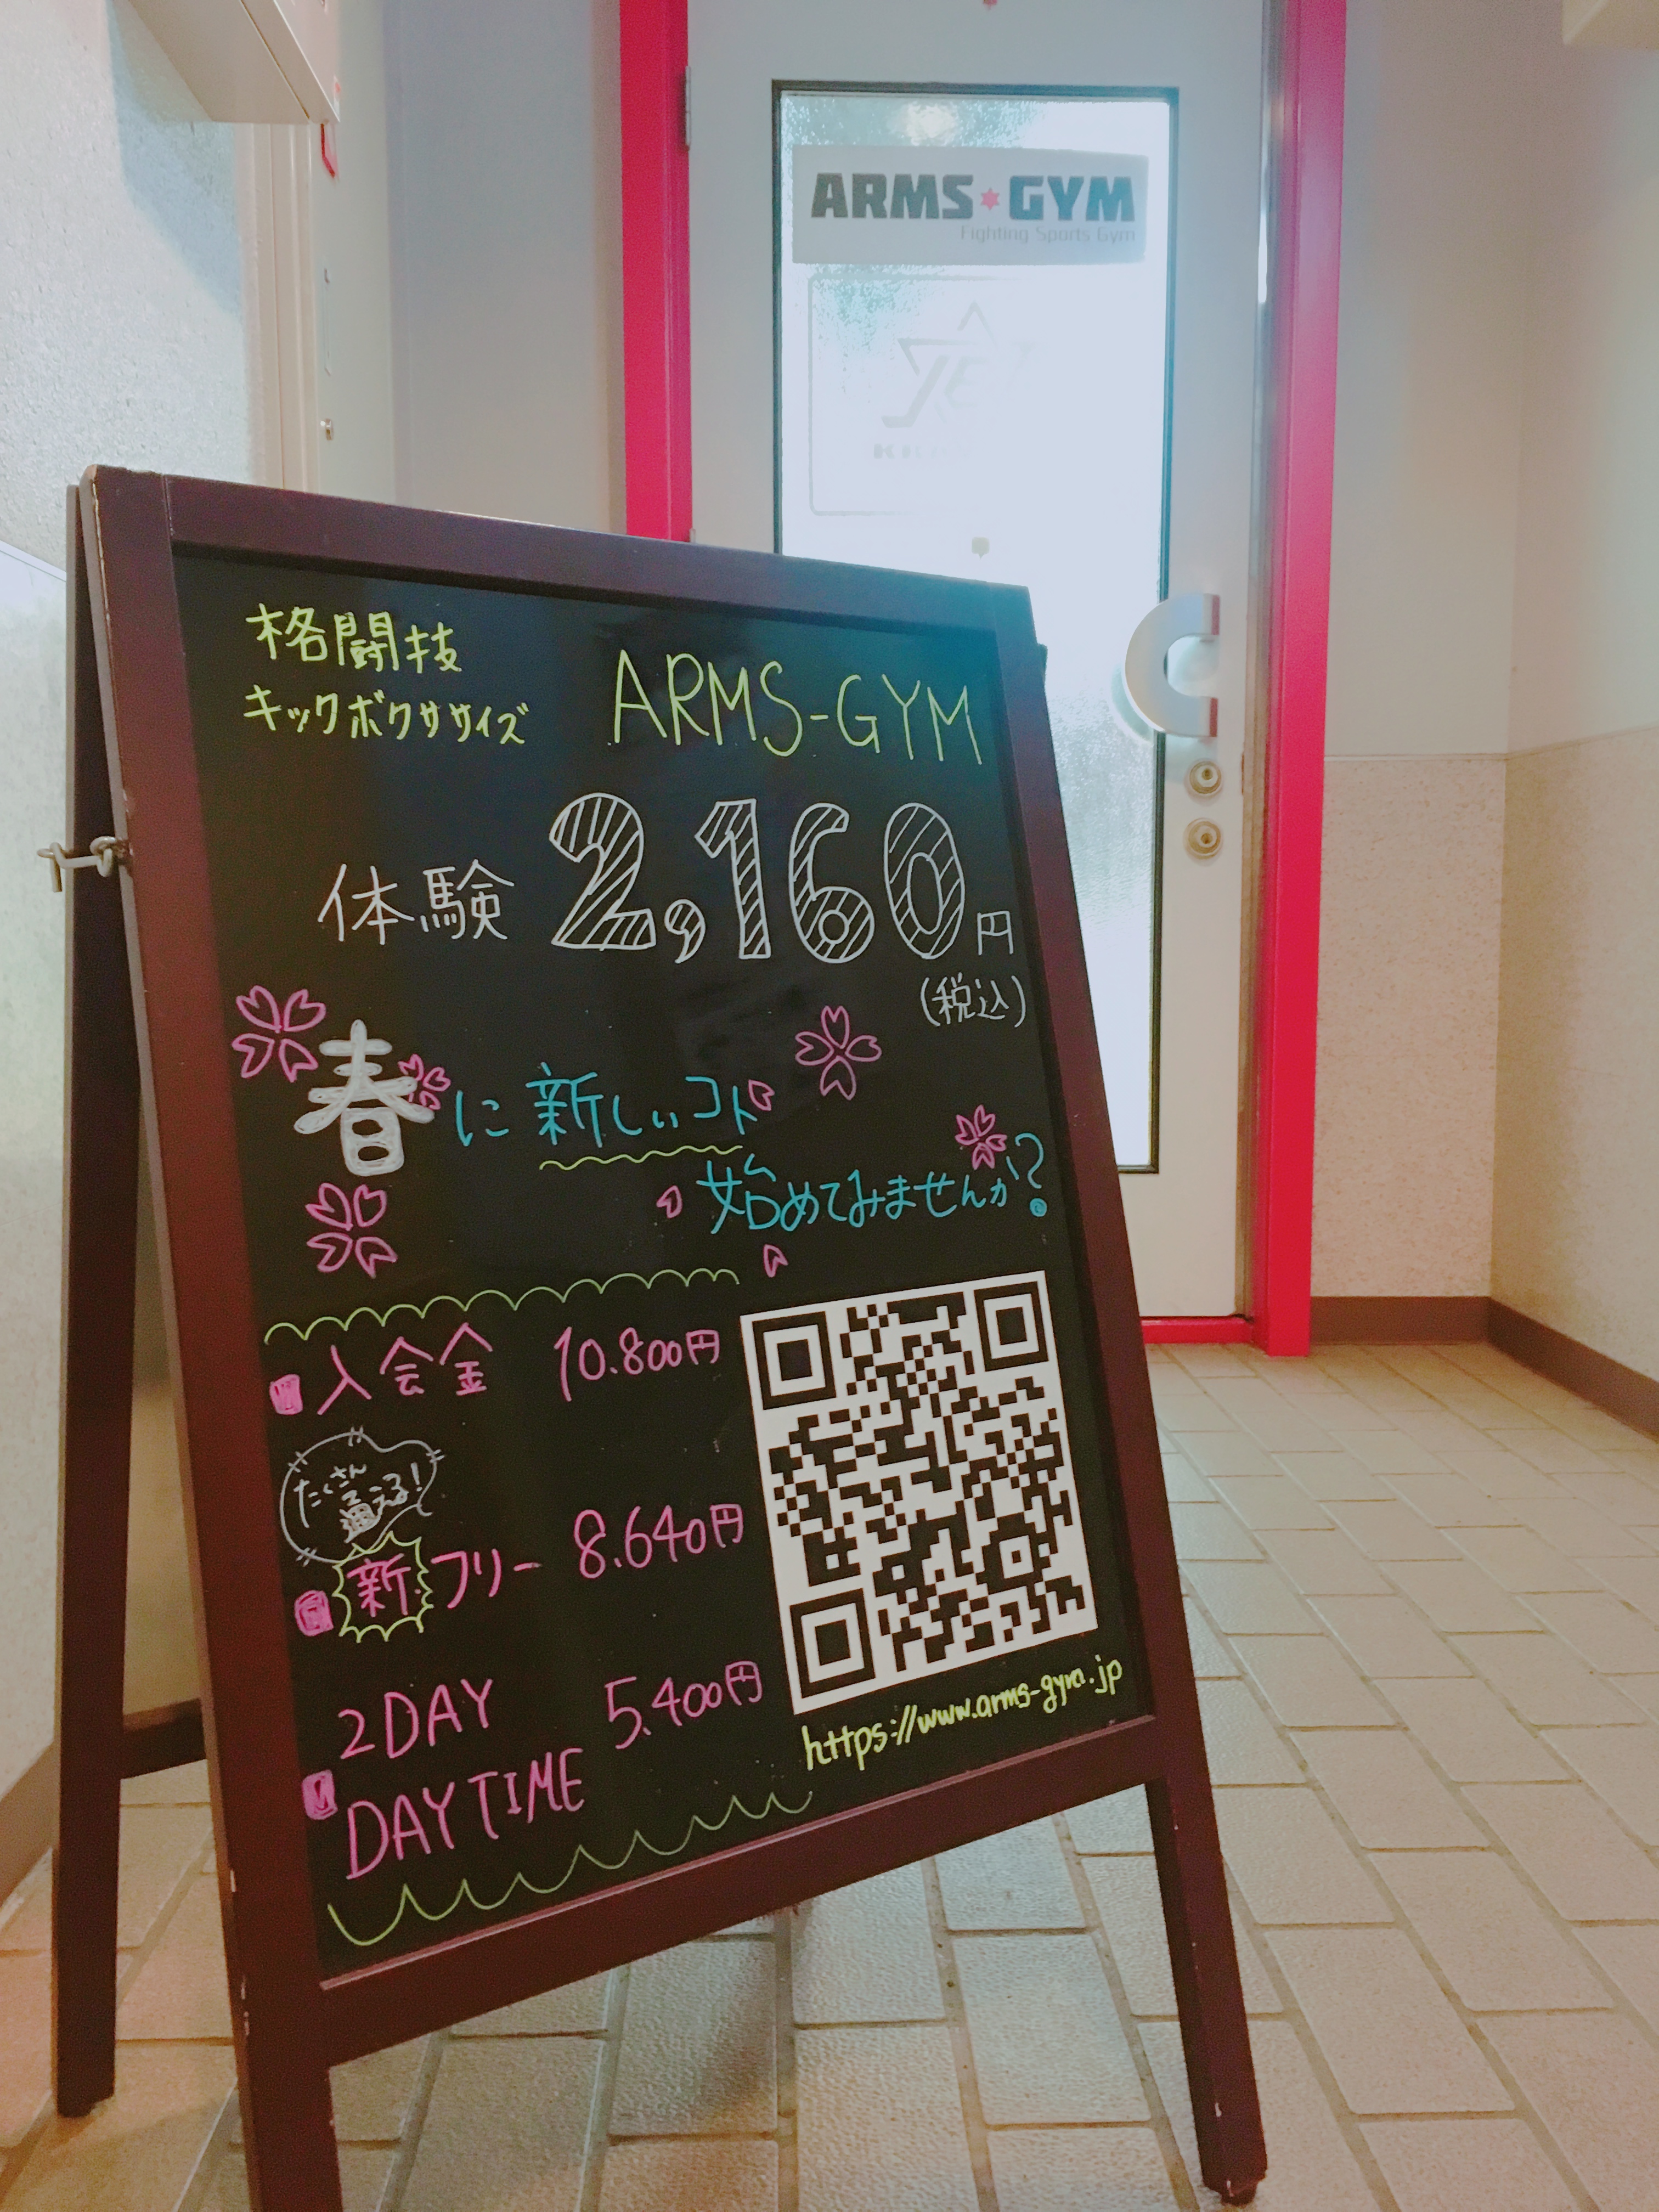 ARMS★GYM
Fighting Sports Gym
格闘技
キックボクササイズ
ARMS-GYM
体験 2,160円
(税込)
春に新しいコト
始めてみませんか?
入会金 10.800円
たくさん
通える!
新フリー 8.640円
2DAY 5.400円
DAYTIME
https://www.arms-gym.jp